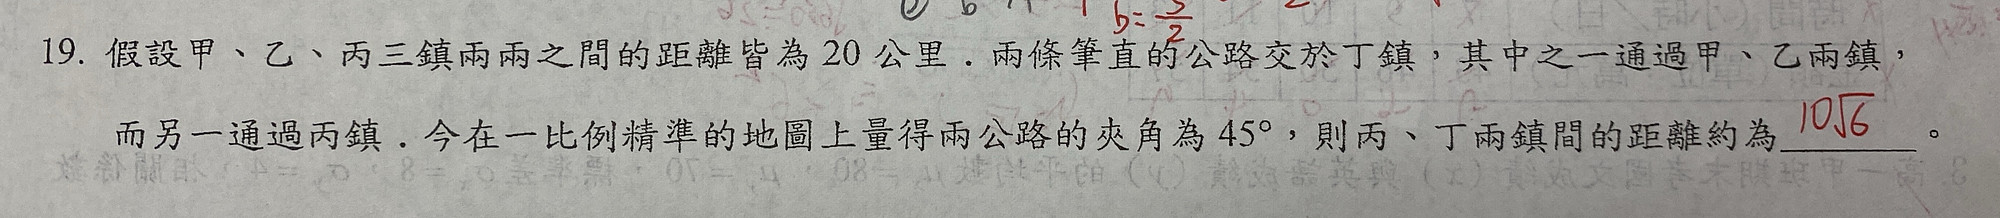 b=5/2
19. 假設甲、乙、丙三鎮兩兩之間的距離皆為 20 公里．兩條筆直的公路交於丁鎮，其中之一通過甲、乙兩鎮，
而另一通過丙鎮．今在一比例精準的地圖上量得兩公路的夾角為 45°，則丙、丁兩鎮間的距離約為 10√6 。